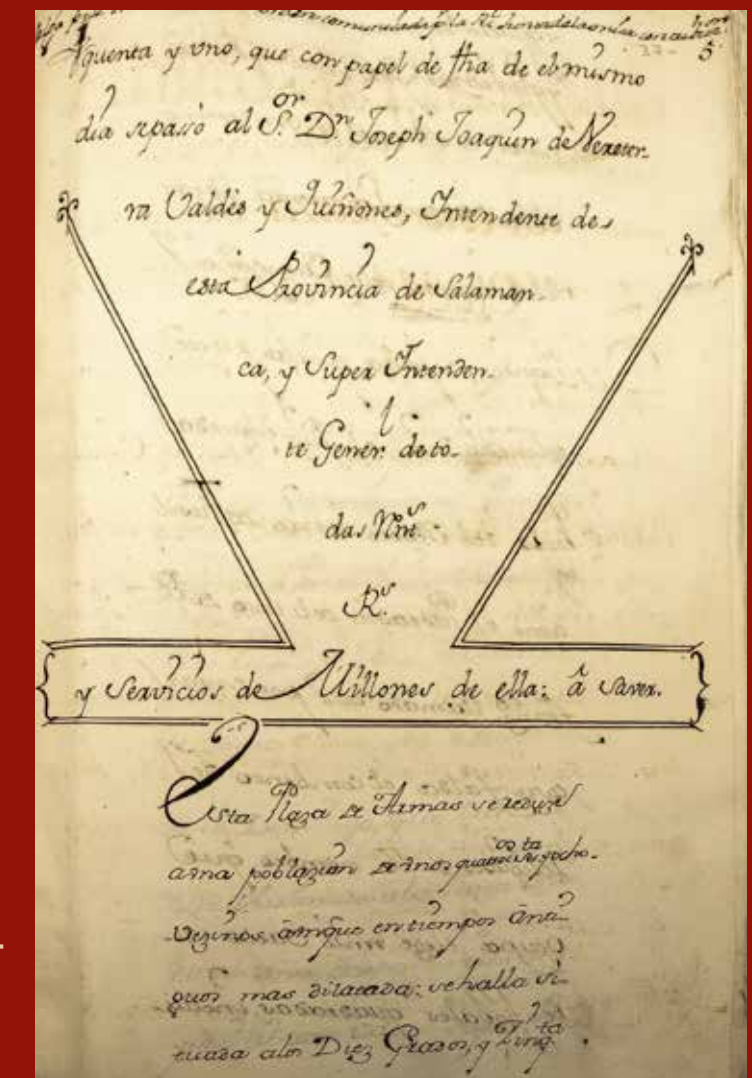 5
quenta y vno, que con papel de fha de el mismo
dia se passò al S.or D.n Joseph Joaquin de Vereter-
ra Valdés y Quiñones, Intendente de
esta Provincia de Salaman-
ca, y Super Intenden-
te Gener.l de to-
das
R.s
y Servicios de Millones de ella: â Saver.
Esta Plaza de Armas se reduze
a vna poblazion de vnos
Vezinos aunque en tiempos anti-
guos mas dilatada: se halla si-
tuada a los Diez Grados, y